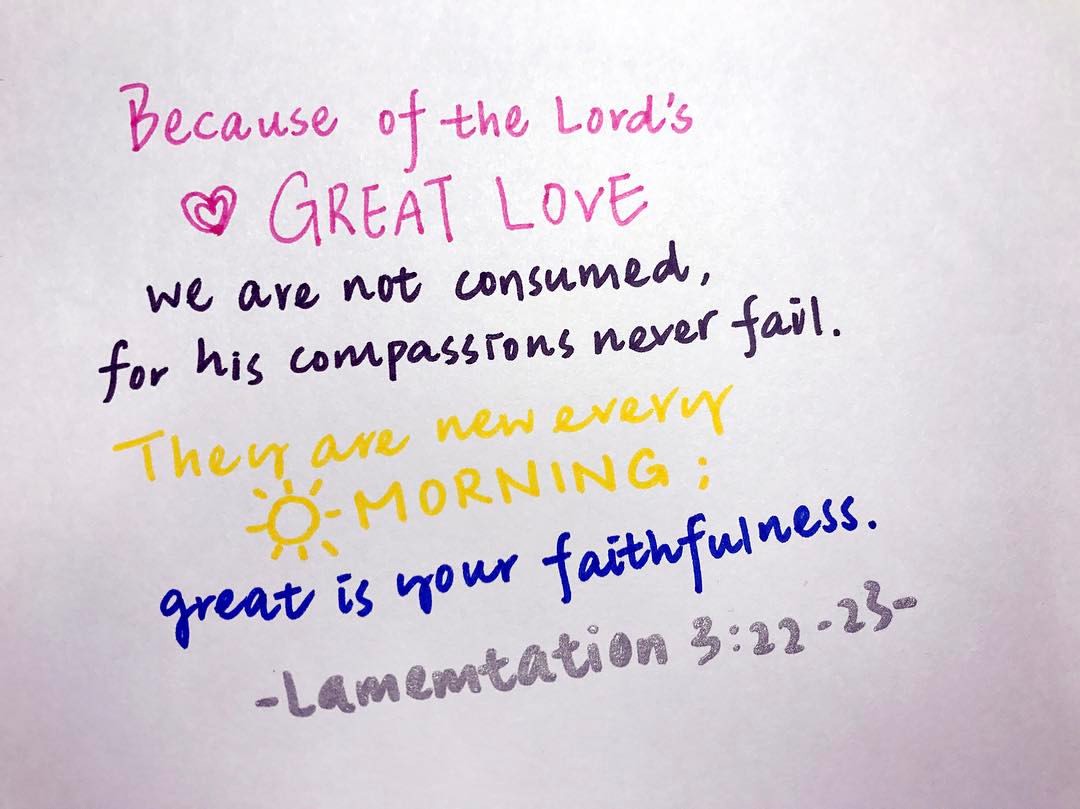 Because of the Lord's
GREAT LOVE
we are not consumed,
for his compassions never fail.
They are new every
MORNING ;
great is your faithfulness.
-Lamemtation 3:22-23-